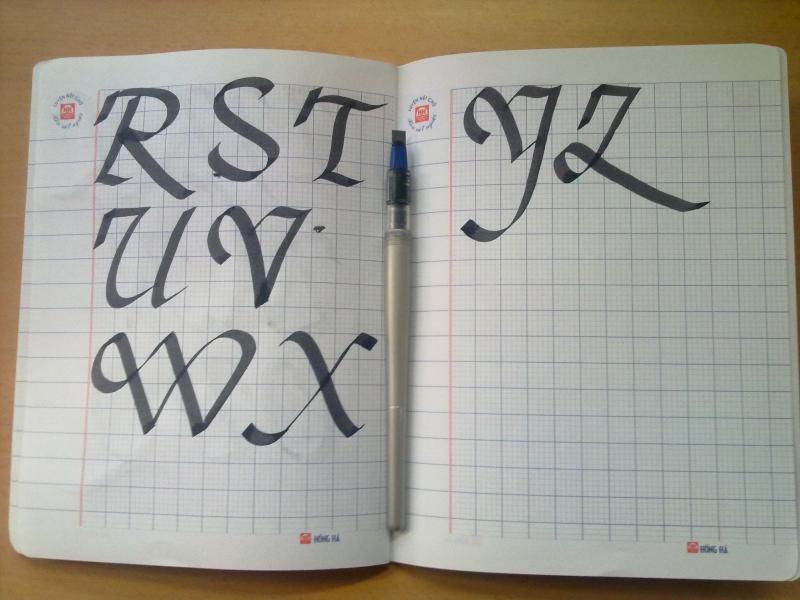 R S T
U V
W X
HỒNG HÀ
Y Z
HỒNG HÀ